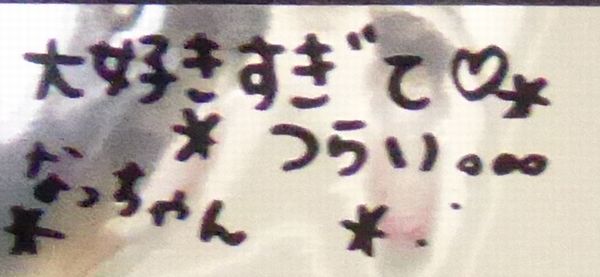 大好きすぎて♡★
★つらい。。。
なっちゃん
★ ★